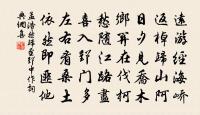 遠游經海嶠
返棹歸山阿
日夕見喬木
鄉關在伐柯
愁隨江路盡
喜入郢門多
左右看桑土
依然即匪他
孟浩然歸至郢中作詞
典網集